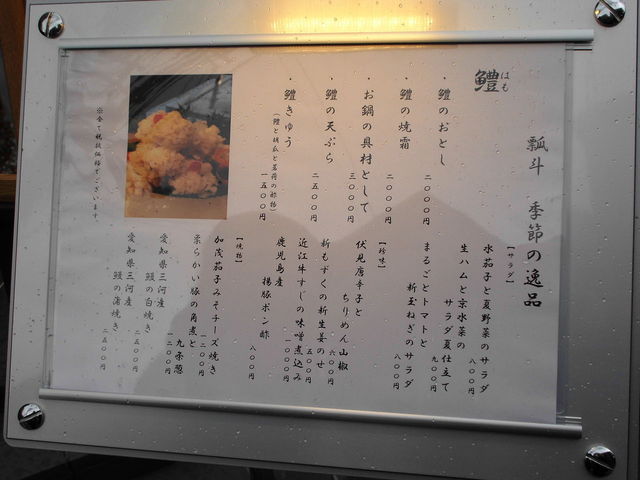 瓢斗 季節の逸品
鱧 はも
・鱧のおとし
二〇〇〇円
・鱧の焼霜
二〇〇〇円
・お鍋の具材として
三〇〇〇円
・鱧の天ぷら
二五〇〇円
・鱧きゅう
(鱧と胡瓜と茗荷の酢物)
一五〇〇円
【サラダ】
水茄子と夏野菜のサラダ
八〇〇円
生ハムと京水菜の
サラダ夏仕立て
九〇〇円
まるごとトマトと
新玉ねぎのサラダ
八〇〇円
【珍味】
伏見唐辛子と
ちりめん山椒
六〇〇円
新もずくの新生姜のせ
五〇〇円
近江牛すじの味噌煮込み
一〇〇〇円
鹿児島産
揚豚ポン酢
八〇〇円
【焼物】
加茂茄子みそチーズ焼き
一二〇〇円
柔らかい豚の角煮と
九条葱
一二〇〇円
愛知県三河産
鰻の白焼き
二五〇〇円
愛知県三河産
鰻の蒲焼き
二五〇〇円
※全て税抜価格でございます。